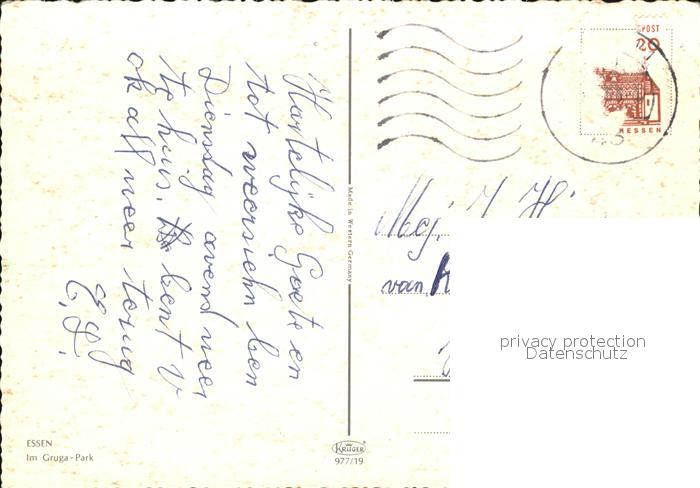 Hartelijke Groete en
tot weersiehn ben
Dienslag avend weer
te huis. bent v
ok all weer terug
E.G.
Made in Western Germany
POST
20
HESSEN
Mej. J. H
van
ESSEN
Im Gruga-Park
KRÜGER
977/19
privacy protection
Datenschutz